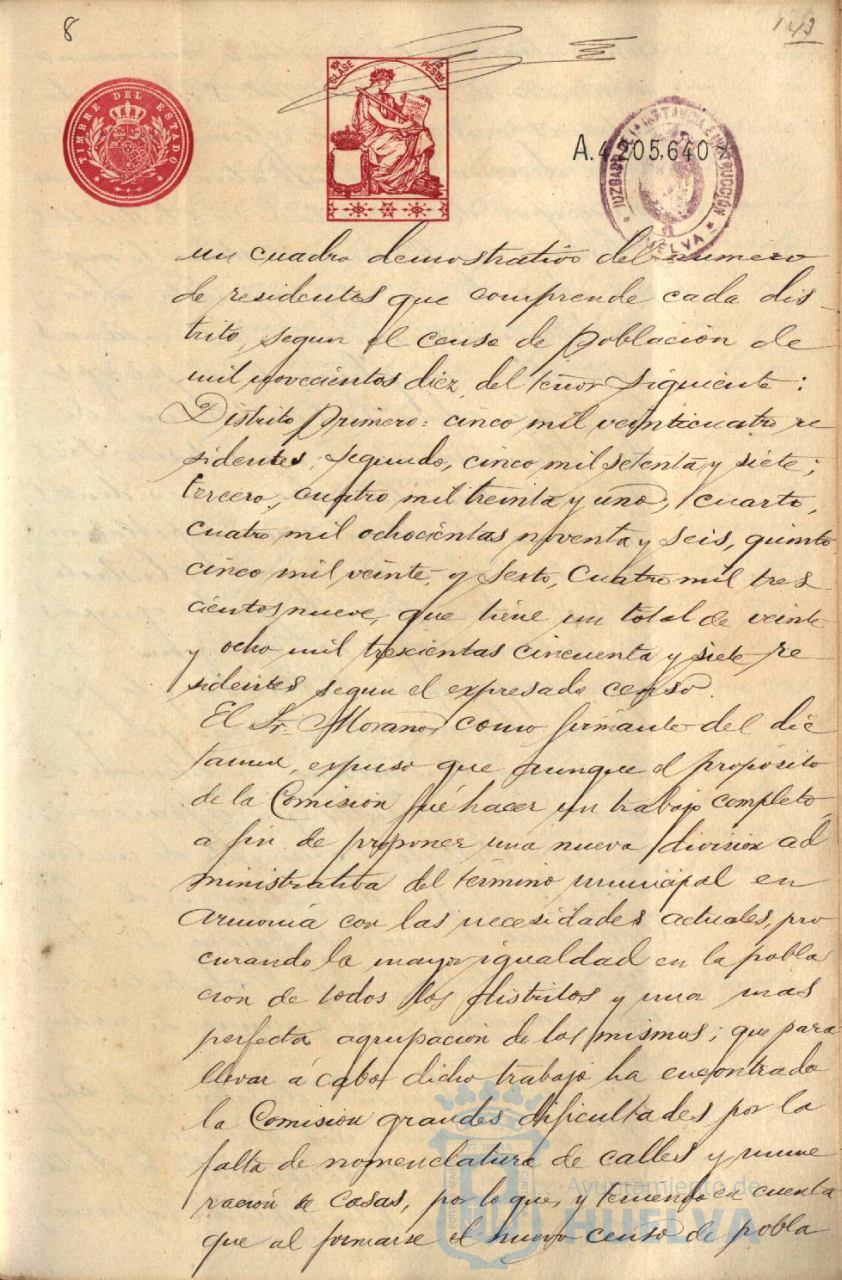 8
143
TIMBRE DEL ESTADO
10ª CLASE
2 PESETAS
A.4.205.640
JUZGADO DE 1ª INSTANCIA E INSTRUCCIÓN
HUELVA
un cuadro demostrativo del número
de residentes que comprende cada dis-
trito, segun el censo de población de
mil novecientos diez, del tenor siguiente:
Distrito primero: cinco mil veinticuatro re
sidentes; segundo, cinco mil setenta y siete;
tercero, cuatro mil treinta y uno; cuarto,
cuatro mil ochocientos noventa y seis, quinto
cinco mil veinte, y sexto, cuatro mil tres
cientos nueve, que tiene un total de veinte
y ocho mil trescientos cincuenta y siete re
sidentes segun el expresado censo.
El Sr. Morano, como firmante del dic
tamen, expuso que aunque el propósito
de la Comisión fué hacer un trabajo completo,
a fin de proponer una nueva división ad
ministrativa del término municipal en
armonía con las necesidades actuales, pro
curando la mayor igualdad en la pobla
ción de todos los distritos y una mas
perfecta agrupación de los mismos; que para
llevar á cabo dicho trabajo ha encontrado
la Comision grandes dificultades por la
falta de nomenclatura de calles y nume
ración de casas, por lo que, y teniendo en cuenta
que al formarse el nuevo censo de pobla
Ayuntamiento de
HUELVA